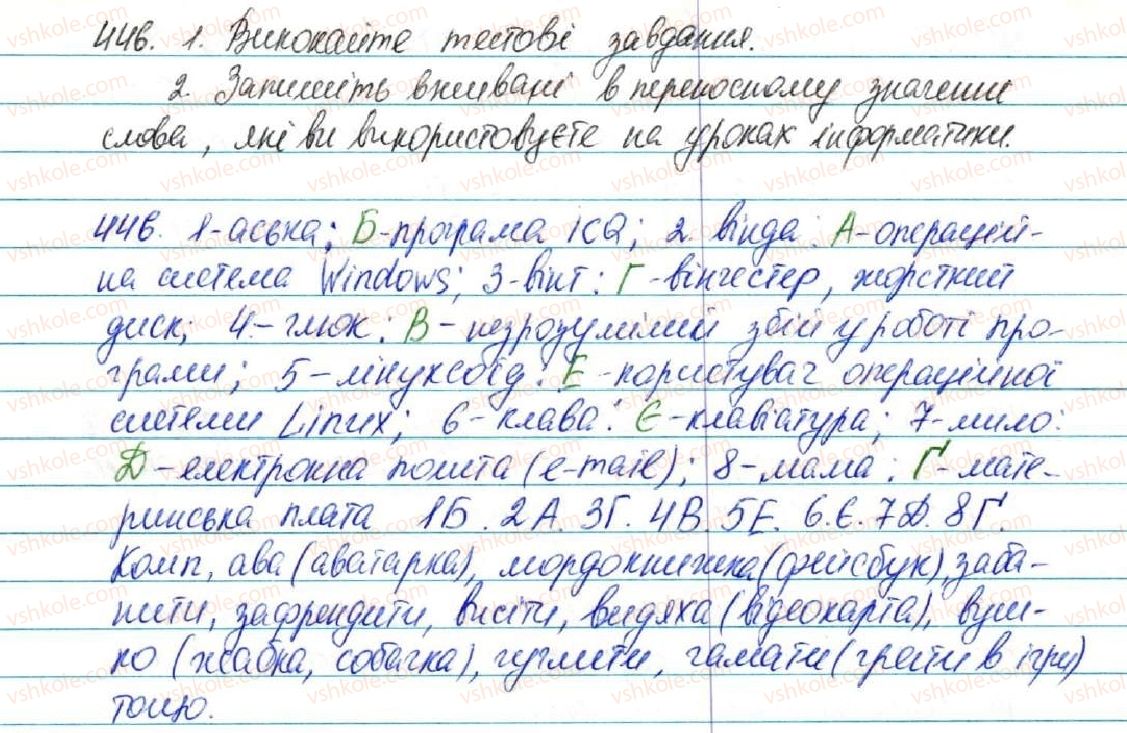 446. 1. Виконайте тестові завдання.
2. Запишіть вживані в переносному значенні
слова, які ви використовуєте на уроках інформатики.
446. 1-аська; Б-програма ICQ; 2. вінда: А-операцій-
на система Windows; 3-вінт: Г-вінчестер, жорсткий
диск; 4-глюк: В-незрозумілий збій у роботі про-
грами; 5-лінуксоїд: Е-користувач операційної
системи Linux; 6-клава: Є-клавіатура; 7-мило:
Д-електронна пошта (e-mail); 8-мама: Ґ-мате-
ринська плата 1Б. 2А. 3Г. 4В. 5Е. 6.Є. 7Д. 8Ґ.
Комп, ава (аватарка), мордокнижка (фейсбук), заба-
нити, зафрендити, висіти, видяха (відеокарта), вуш-
ко (жабка, собачка), гуглити, гамати (грати в ігри)
тощо.